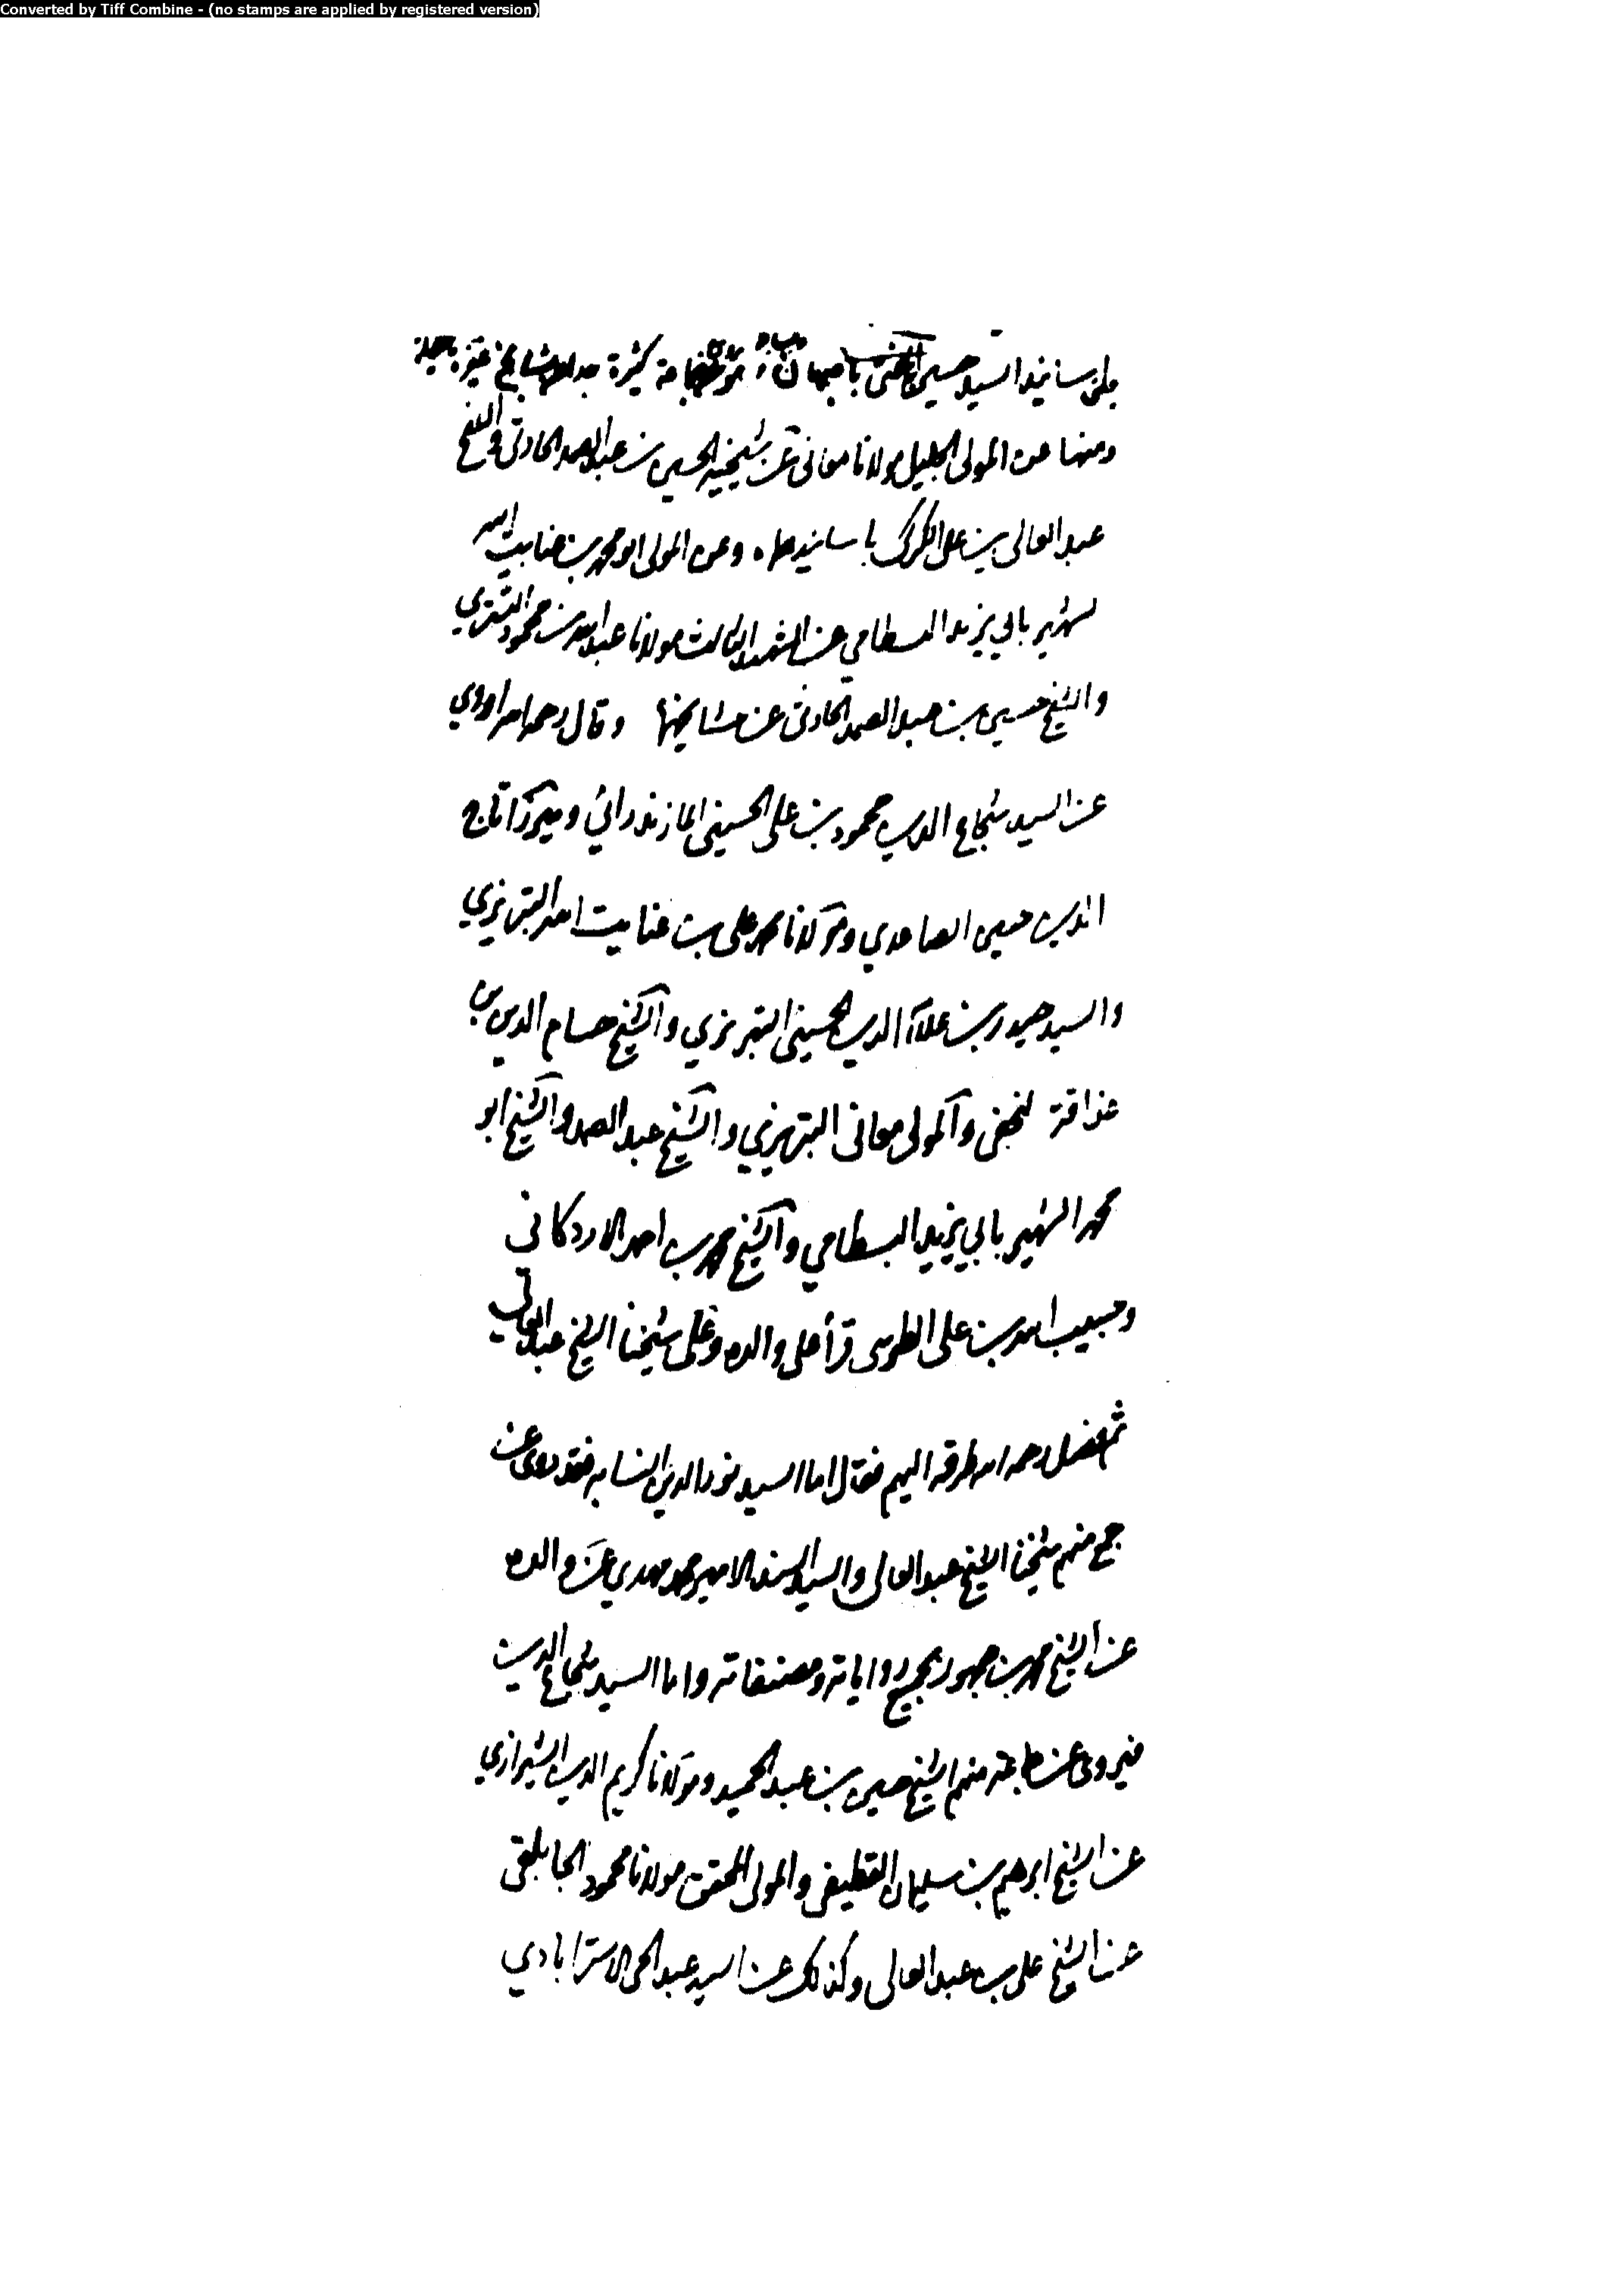 Converted by Tiff Combine - (no stamps are applied by registered version)
السيد حسين كثيرة
ومنها عن المولى الجليل مولانا معانى عن شيخيه الحسين بن عبد الصمد الحارثى والشيخ
عبد العالى بن على الكركى باسانيدهما وعن المولى ابو محمد بن عنايت الله
لشهير بابي يزيد البسطامي عن الشهيد الثالث مولانا عبد الله بن محمود التستري
والشيخ حسين بن عبد الصمد الحارثى عن مشايخهما وقال رحمه الله اروي
عن السيد شجاع الدين محمود بن على الحسينى المازندرانى وميرزا تاج
الدين حسين الصاعدي ومولانا محمد على بن عنايت الله التبريزي
والسيد حيدر بن علاء الدين الحسينى التبريزي والشيخ حسام الدين بن
عذاقة لنجفى والمولى معانى التبريزي والشيخ عبد الصمد والشيخ ابو
محمد الشهير بابي يزيد البسطامي والشيخ محمد بن احمد الاردكانى
وحبيب الله بن على الطوسى قرأ على والده وعلى شيخنا الشيخ عبد العالي
ثم فصل رحمه الله طرقه اليهم فقال اما السيد نور الدين النسابه فقد روى عن
جمع منهم شيخنا الشيخ عبد العالى والسيد السند الامير محمد مهدي عن والده
عن الشيخ محمد بن جمهور بجميع رواياته ومصنفاته واما السيد شجاع الدين
فيروى عن جماعة منهم الشيخ حسين بن عبد الحميد ومولانا كريم الدين الشيرازي
عن الشيخ ابرهيم بن سليمان القطيفى والمولى المحقق مولانا محمود الجابلقى
عن الشيخ على بن عبد العالى وكذلك عن السيد عبد الحى الاسترابادي